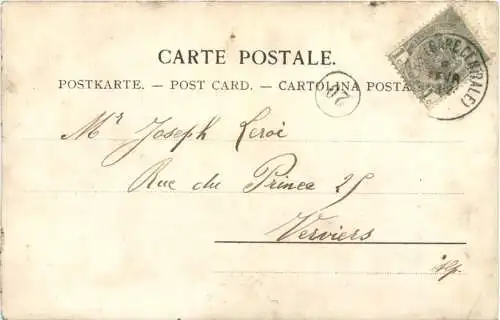 CARTE POSTALE.
POSTKARTE. — POST CARD. — CARTOLINA POSTA
20
(GARE CENTRALE)
Mr Joseph Leroi
Rue du Prince 25
Verviers